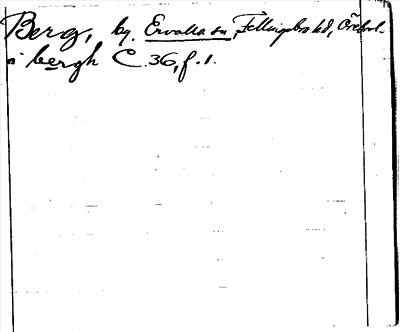 Berg, by. Ervalla sn, Fellingsbro hd, Örebro l.
i bergh C. 36, f. 1.